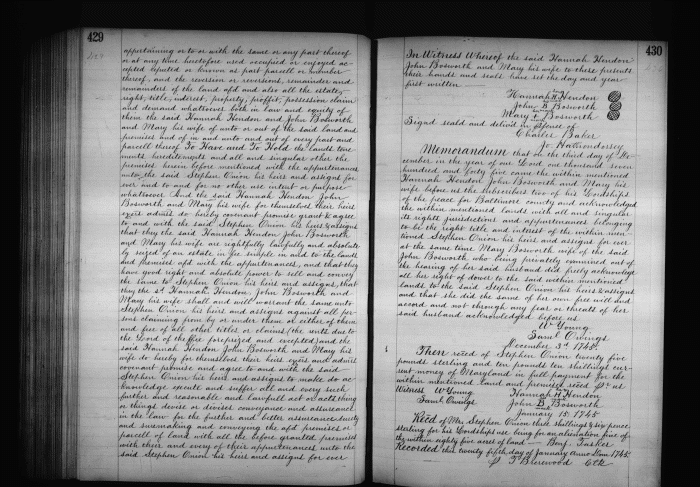 429
appertaining or to or with the same or any part thereof
or at any time heretofore used occupied or enjoyed ac-
cepted reputed or known as part parcell or member
thereof, and the reversion or reversions, remainder and
remainders of the land afd and also all the estate,
right, title, interest, property, proffit, possession claim
and demand whatsoever both in law and equity of
them the said Hannah Hendon and John Bosworth
and Mary his wife of unto or out of the said land and
premises and of in and unto and out of every part and
parcell thereof To Have and To Hold the lands tene
ments hereditements and all and singular other the
premises herein before mentioned with the appurtenances
unto the said Stephen Onion his heirs and assigns for
ever and to and for no other use intent or purpose
whatsoever And the said Hannah Hendon John
Bosworth and Mary his wife for themselves their heirs
exrs admrs do hereby covenant promise grant & agree
to and with the said Stephen Onion his heirs & assigns
that they the said Hannah Hendon John Bosworth
and Mary his wife are rightfully lawfully and absolute
ly seized of an estate in fee simple in and to the lands
and premises afd with the appurtenances, and that they
have good right and absolute power to sell and convey
the same to Stephen Onion his heirs and assigns, that
they the sd. Hannah Hendon, John Bosworth and
Mary his wife shall and will warrant the same unto
Stephen Onion his heirs and assigns against all per-
sons claiming from by or under them or either of them
and free of all other titles or claims (the rents due to
the Lord of the fee foreprized and excepted) and the
said Hannah Hendon John Bosworth and Mary his
wife do hereby for themselves their heirs exrs and admrs
covenant promise and agree to and with the said
Stephen Onion his heirs and assigns to make do ac-
knowledge execute and suffer all and every such
further and reasonable and lawfull act or acts thing
or things devise or devises conveyance and assurance
in the law for the further and better assurance surety
and suremaking and conveying the afd premises or
parcell of land with all the before granted premises
with their and every of their appurtenances unto the
said Stephen Onion his heirs and assigns for ever
430
In Witness Whereof the said Hannah Hendon
John Bosworth and Mary his wife to these presents
their hands and seals have set the day and year
first written
Hannah H Hendon
John B Bosworth
Mary + Bosworth
Signd seald and delivd in presence of
Charles Baker
Memorandum that on the third day of De-
cember in the year of our Lord one thousand seven
hundred and forty five came the within mentioned
Hannah Hendon John Bosworth and Mary his
wife before us the subscribers two of his Lordships
of the peace for Baltimore county and acknowledged
the within mentioned lands with all and singular
its rights jurisdictions and appurtenances belonging
to be the right title and interest of the within men-
tioned Stephen Onion his heirs and assigns for ever
at the same time Mary Bosworth wife of the said
John Bosworth who being privately examined out of
the hearing of her said husband did freely acknowledge
all her right of dower to the said within mentioned
lands to the said Stephen Onion his heirs & assigns
and that she did the same of her own free will and
accord and not through any fear or threats of her
said husband acknowledged before us
Wm Young
Saml Owings
December 3d 1745
Then recd of Stephen Onion twenty five
pounds sterling and ten pounds ten shillings cur-
rent money of Maryland in full payment for the
within mentioned land and premises recd pr us
Witness Wm Young Hannah H Hendon
Saml. Owings John B Bosworth
January 15. 1745
Recd of Mr. Stephen Onion three shillings & six pence
sterling for his Lordships use being for an alienation fine of
the within eighty five acres of land Benj. Tasker
Recorded this twenty fifth day of January Anno Dom 1745
T Brerewood Clk